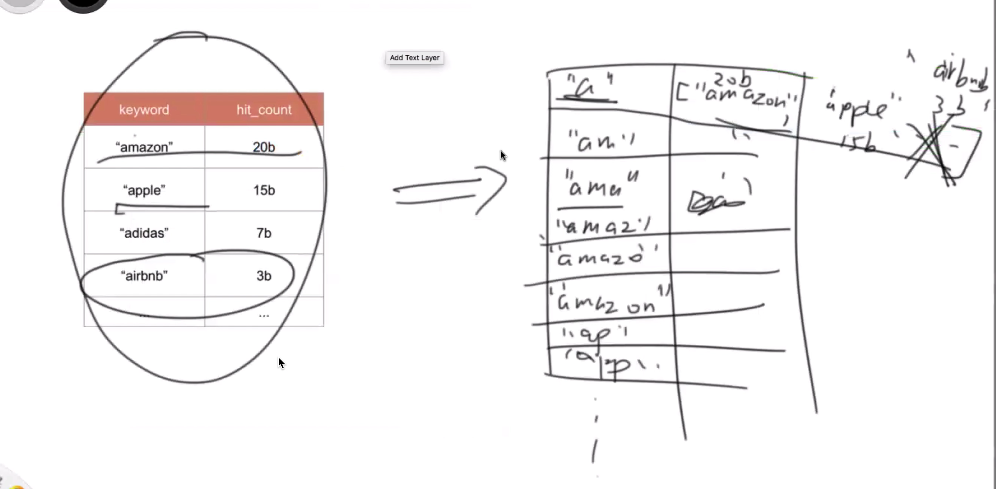 Add Text Layer
keyword hit_count
“amazon” 20b
“apple” 15b
“adidas” 7b
“airbnb” 3b
... ...
"a" 20b ["amazon" "apple" 15b "airbnb" 3b
"am"
"ama"
"amaz"
"amazo"
"amazon"
"ap"
"app"